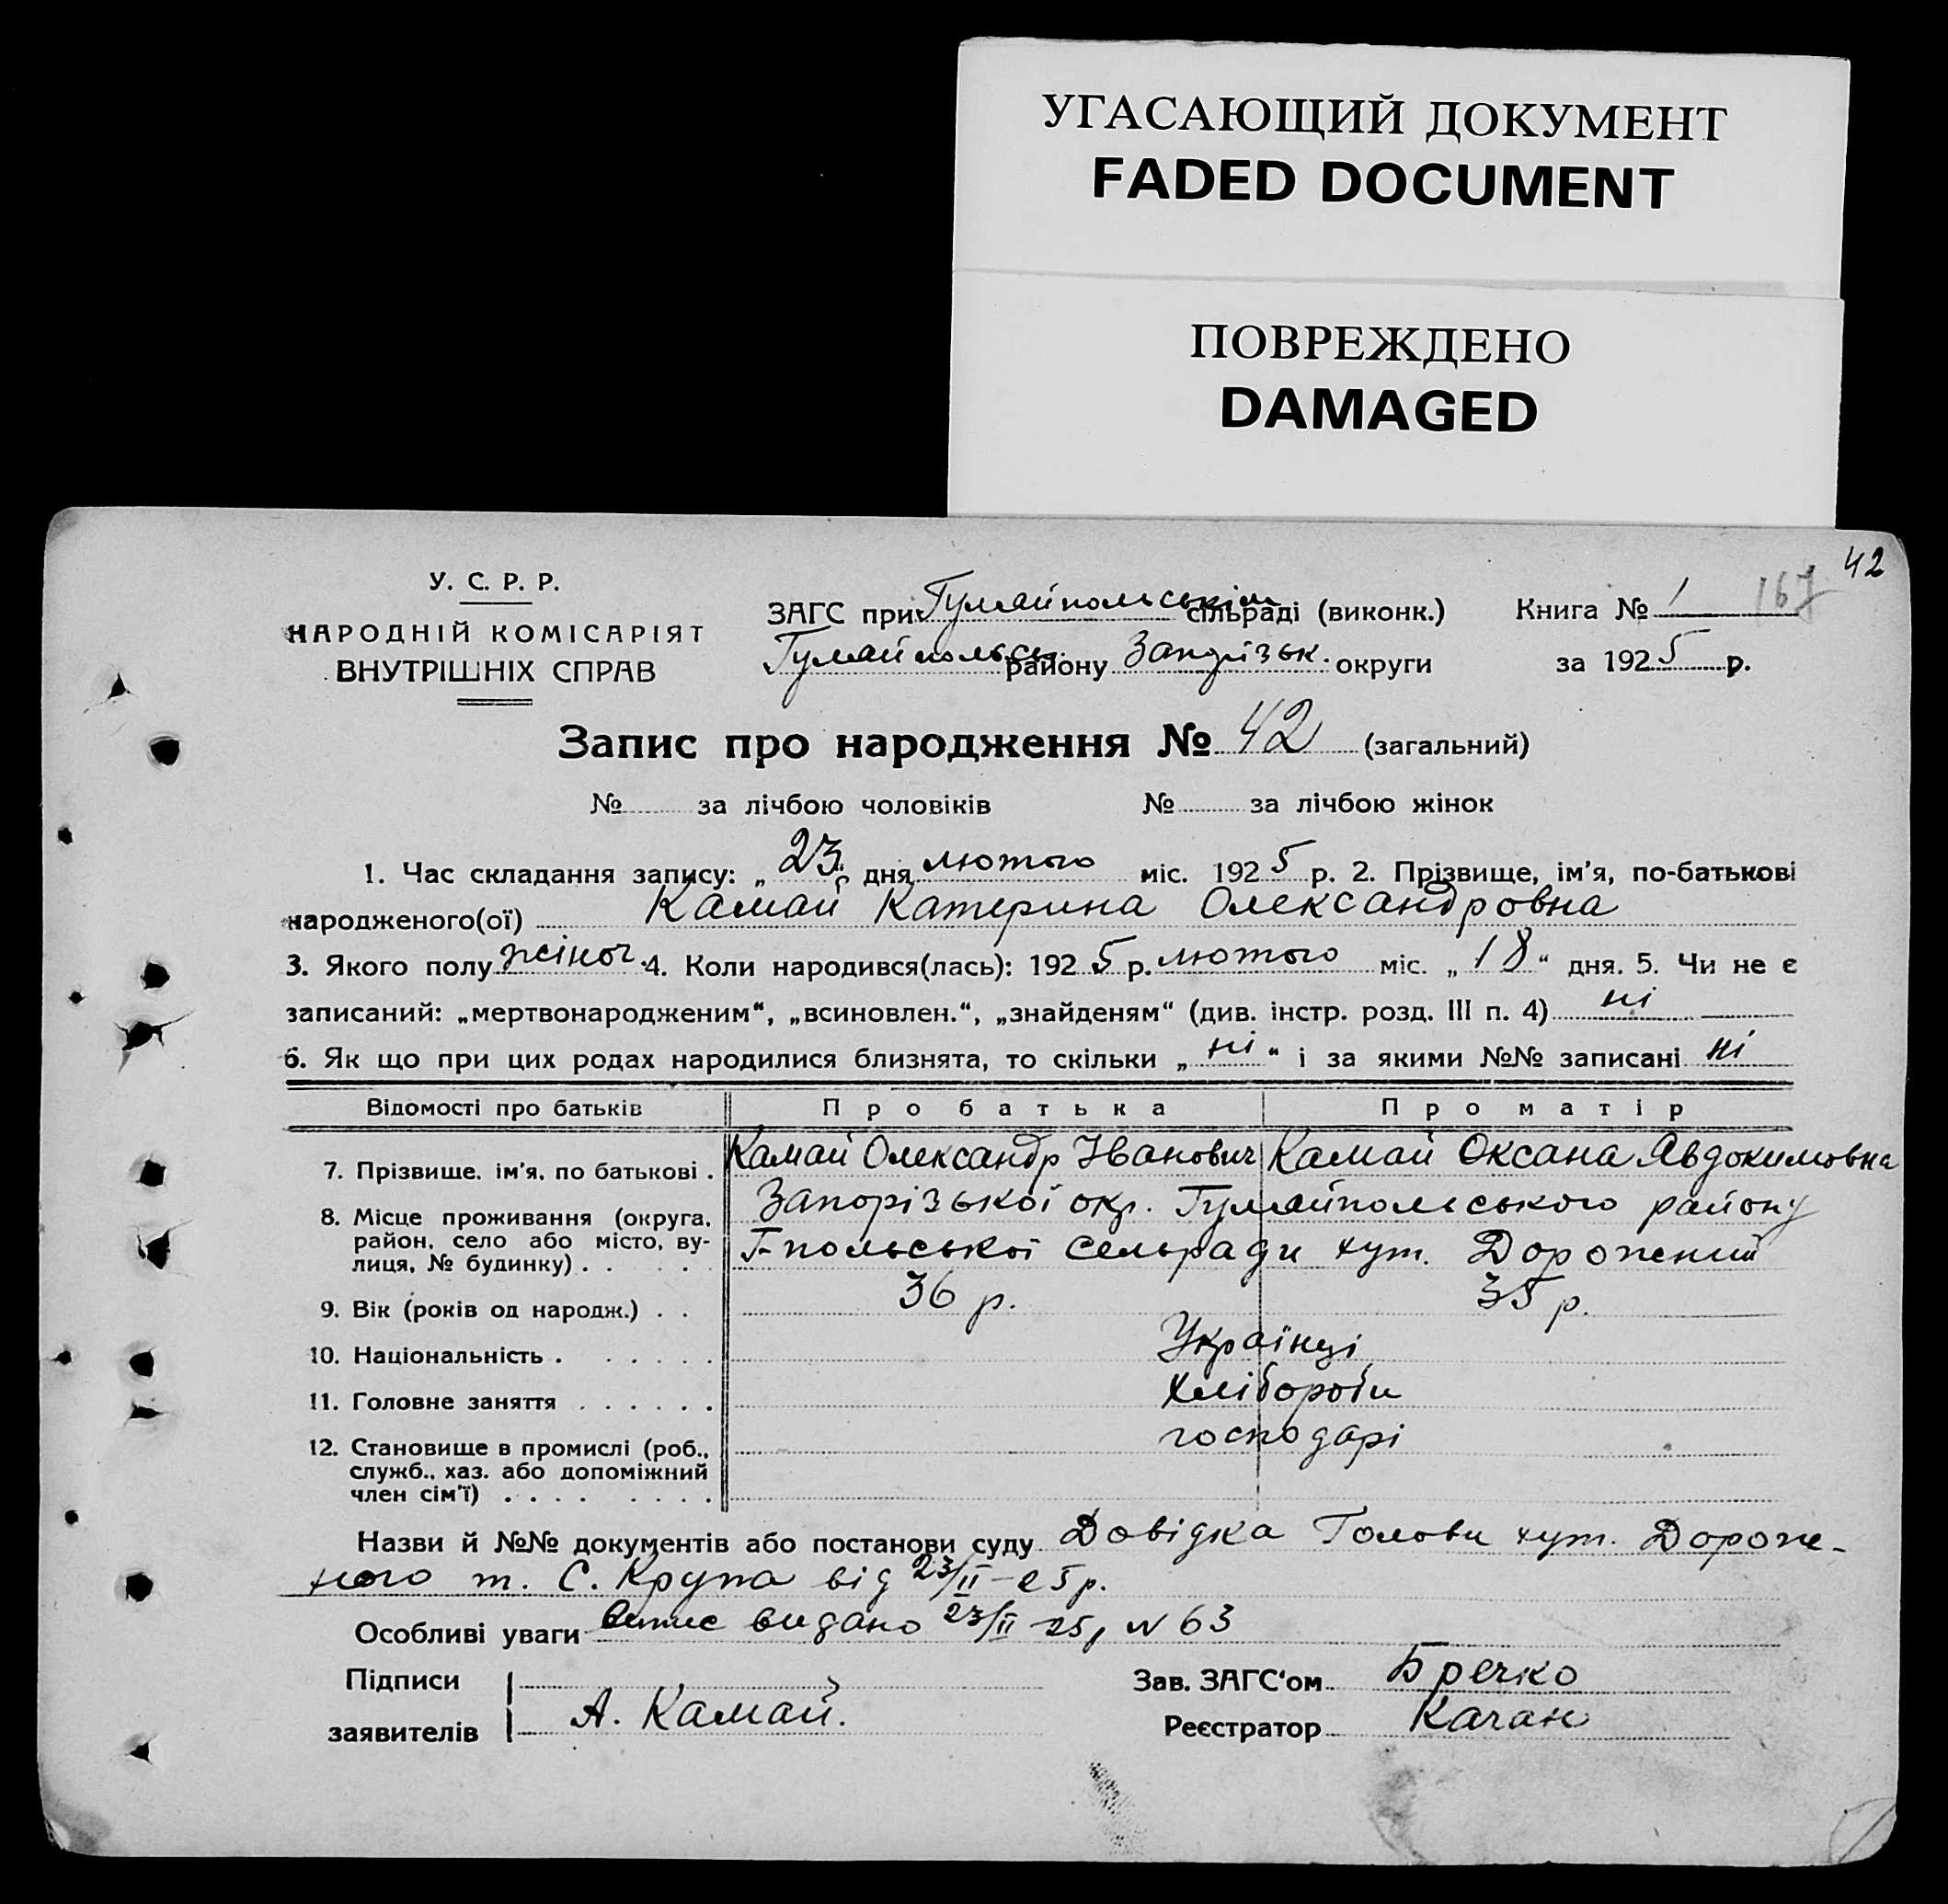 УГАСАЮЩИЙ ДОКУМЕНТ
FADED DOCUMENT
ПОВРЕЖДЕНО
DAMAGED
42
У. С. Р. Р.
НАРОДНІЙ КОМІСАРІЯТ
ВНУТРІШНІХ СПРАВ
ЗАГС при Гуляйпольськім сільраді (виконк.) Книга № 1 167
Гуляйпольськ. району Запорізьк. округи за 1925 р.
Запис про народження № 42 (загальний)
№ за лічбою чоловіків № за лічбою жінок
1. Час складання запису: „ 23 " дня лютого міс. 1925 р. 2. Прізвище, ім'я, по-батькові
народженого(ої) Камай Катерина Олександровна
3. Якого полу жіноч. 4. Коли народився(лась): 1925 р. лютого міс. „ 18 " дня. 5. Чи не є
записаний: „мертвонародженим", „всиновлен.", „знайденям" (див. інстр. розд. III п. 4) ні
6. Як що при цих родах народилися близнята, то скільки „ ні " і за якими №№ записані ні
Відомості про батьків Про батька Про матір
7. Прізвище, ім'я, по батькові . Камай Олександр Іванович Камай Оксана Явдокимовна
8. Місце проживання (округа, район, село або місто, вулиця, № будинку) . . Запорізької окр. Гуляйпольського району
Г-польської сельради хут. Дорожений
9. Вік (років од народж.) . . 36 р. 35 р.
10. Національність . Українці
11. Головне заняття Хлібороби
12. Становище в промислі (роб., служб., хаз. або допоміжний член сім'ї) господарі
Назви й №№ документів або постанови суду Довідка Голови хут. Дороже-
ного т. С. Крупа від 23/II-25 р.
Особливі уваги Витис видано 23/II-25, N 63
Підписи Зав. ЗАГС'ом Бречко
заявителів А. Камай. Реєстратор Качан